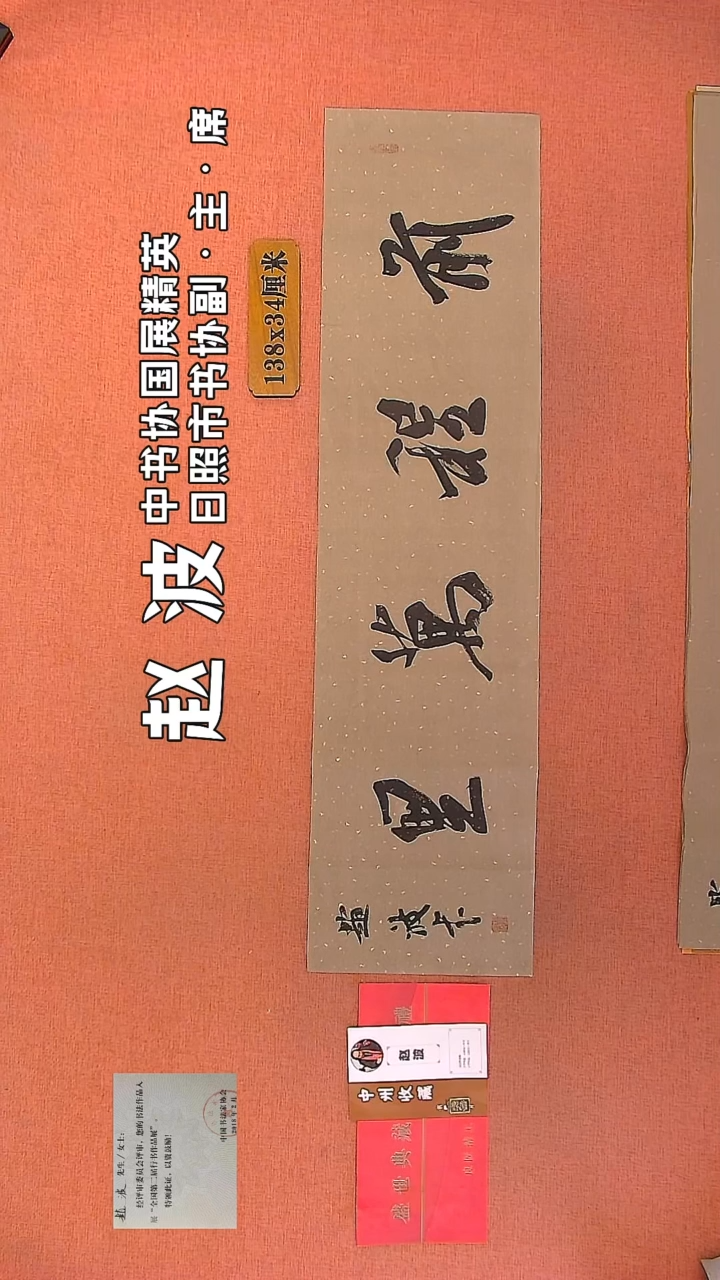 赵波
中书协国展精英
日照市书协副·主·席
138x34厘米
前程萬里
趙波书
赵波
中州收藏
盛世典藏
趙波 先生/女士:
经评审委员会评审,您的书法作品入
展“全国第二届行书作品展”。
特颁此证,以资鼓励!
中国书法家协会
2018年2月